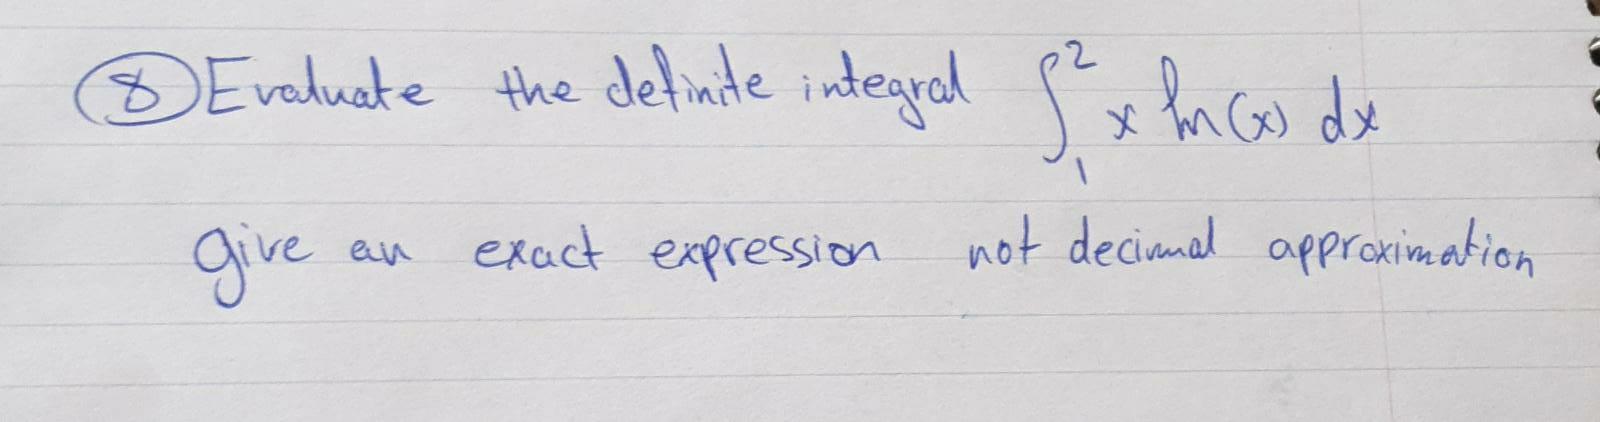 8 Evaluate the definite integral ∫₁² x ln(x) dx
give an exact expression not decimal approximation